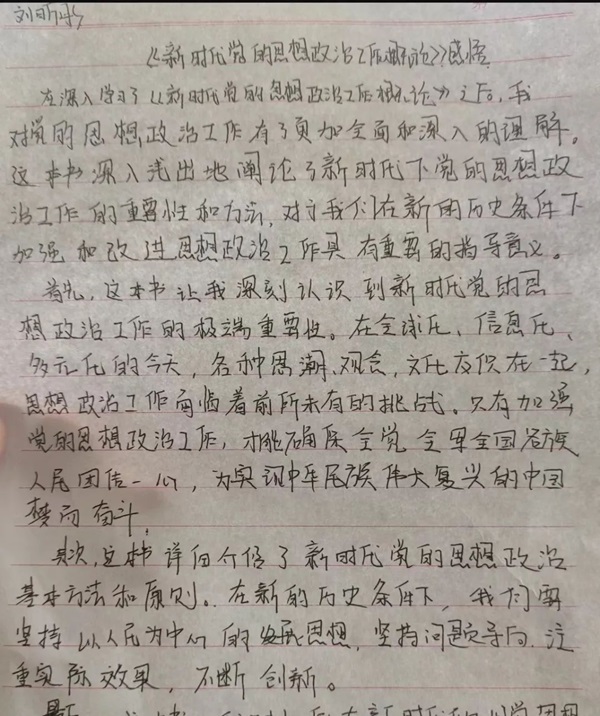 刘昕彤
《新时代党的思想政治工作概论》感悟
在深入学习了《新时代党的思想政治工作概论》之后，我
对党的思想政治工作有了更加全面和深入的理解。
这本书深入浅出地阐论了新时代下党的思想政
治工作的重要性和方法，对于我们在新的历史条件下
加强和改进思想政治工作具有重要的指导意义。
首先，这本书让我深刻认识到新时代党的思
想政治工作的极端重要性。在全球化、信息化、
多元化的今天，各种思潮、观念，文化交织在一起，
思想政治工作面临着前所未有的挑战。只有加强
党的思想政治工作，才能确保全党全军全国各族
人民团结一心，为实现中华民族伟大复兴的中国
梦而奋斗。
其次，这本书详细介绍了新时代党的思想政治
基本方法和原则。在新的历史条件下，我们要
坚持以人民为中心的发展思想，坚持问题导向，注
重实际效果，不断创新。